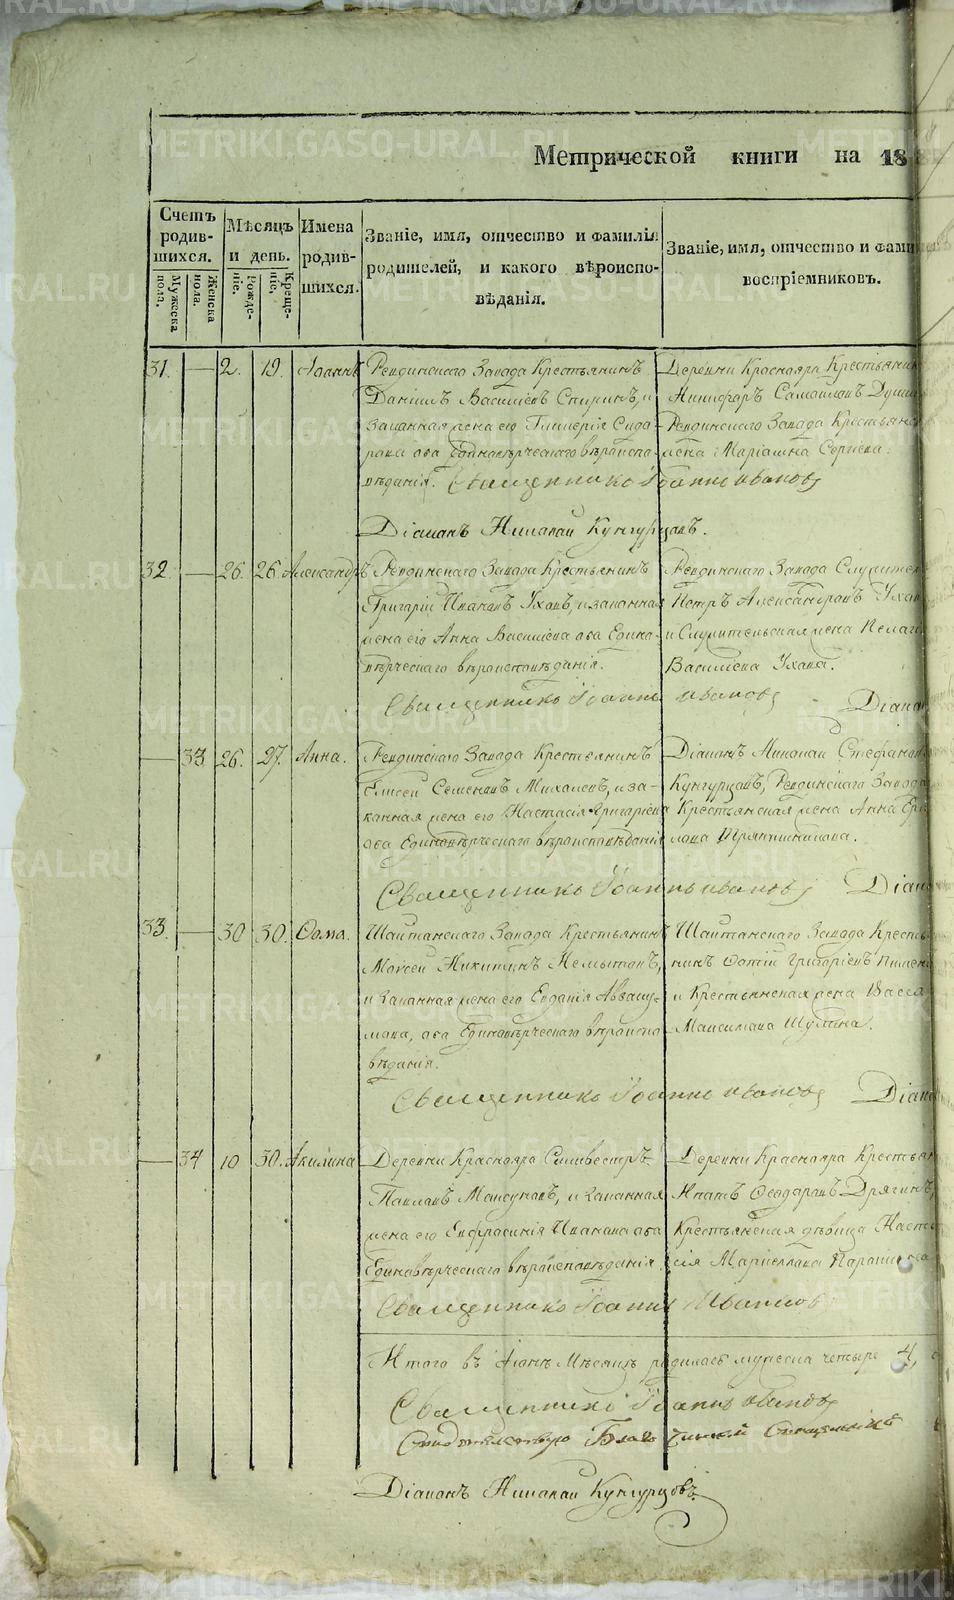 Метрической книги на 18
Счетъ родив-шихся.
Мужеска пола.
Женска пола.
Мѣсяцъ и день.
Рожде-ніе.
Креще-ніе.
Имена родив-шихся.
Званіе, имя, отчество и фамилія
родителей, и какого вѣроиспо-
вѣданія.
Званіе, имя, отчество и фами
воспріемниковъ.
31. — 2. 19. Іоаннъ
Ревдинскаго Завода Крестьянинъ
Даніилъ Василіевъ Спиринъ, и
законная жена его Гликерія Сидо-
рова оба Единовѣрческаго вѣроиспо-
вѣданія. Священникъ Іоаннъ Ивановъ
Деревни Краснояра Крестьянин
Никифоръ Самойловъ
Ревдинскаго Завода Крестьянс
жена Маріамна Сергіева.
Діаконъ Николай Кунгурцовъ.
32. — 26. 26. Александръ
Ревдинскаго Завода Крестьянинъ
Григорій Ивановъ Уховъ, и законная
жена его Анна Василіева оба Едино-
вѣрческаго вѣроисповѣданія.
Священникъ Іоаннъ Ивановъ
Ревдинскаго Завода Служител
Петръ Александровъ Ухов
и Служительская жена Пелаг
Василіева Ухова.
Діакон
— 33 26. 27. Анна.
Ревдинскаго Завода Крестьянинъ
Елисей Семеновъ Михалевъ, и за-
конная жена его Настасія Григоріева
оба Единовѣрческаго вѣроисповѣданія
Діаконъ Николай Стефанов
Кунгурцовъ, Ревдинскаго Завода
Крестьянская жена Анна
лова Тряпишникова.
Священникъ Іоаннъ Ивановъ
Діако
33. — 30 30. Ѳома.
Шайтанскаго Завода Крестьянинъ
Моѵсей Никитинъ Немытовъ,
и законная жена его Евдокія Авваку-
мова, оба Единовѣрческаго вѣроиспо
вѣданія.
Шайтанскаго Завода Кресть
нинъ Фотій Григоріевъ Пимен
и Крестьянская жена Васса
Максимова Шумина.
Священникъ Іоаннъ Ивановъ
Діако
— 34 10 30. Акилина
Деревни Краснояра Силвестръ
Павловъ Максуновъ, и законная
жена его Евфросинія Иванова оба
Единовѣрческаго вѣроисповѣданія.
Деревни Краснояра Крестьян
Ипатъ Ѳеодоровъ Дрягинъ,
Крестьянская дѣвица Наста
сія Маркеллова
Священникъ Іоаннъ Ивановъ
Итого въ Іюнѣ Мѣсяцѣ родилось мужеска четыре 4,
Священникъ Іоаннъ Ивановъ
Свидѣтельствую Благочинный Священникъ
Діаконъ Николай Кунгурцовъ.
METRIKI.GASO-URAL.RU